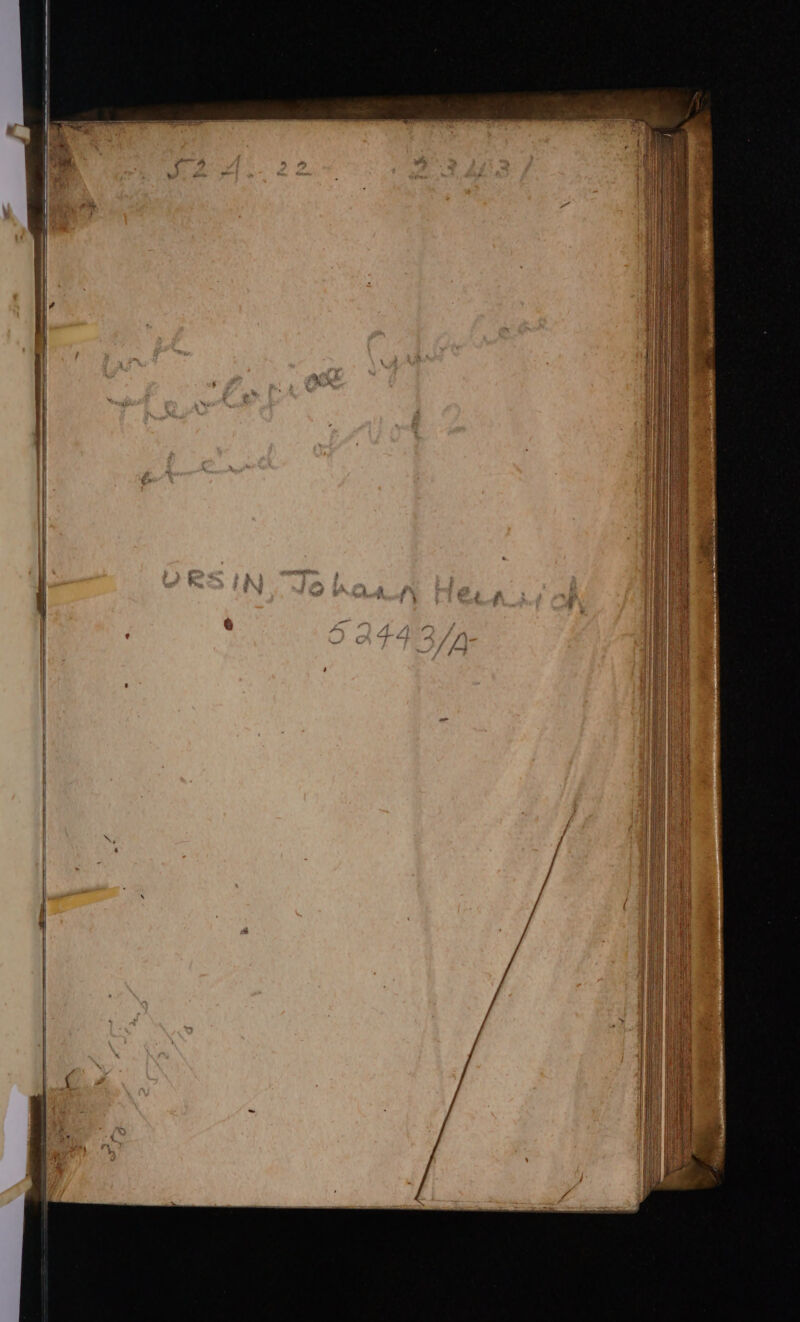 52 A. 22 23431
with
Theologiae Symbolicae
at end of Vol 2
URSIN, Johann Heinrich
52443/A
350 /25/2/10